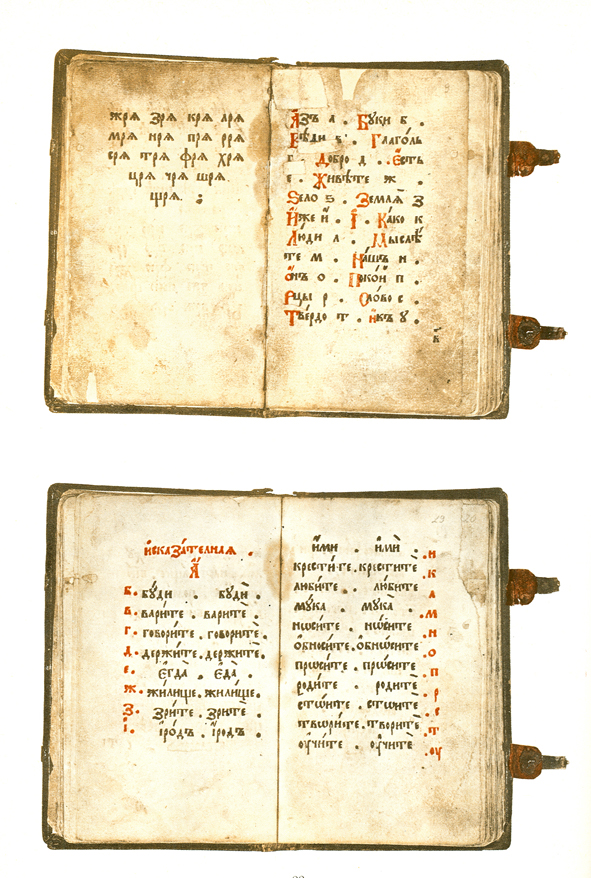 жрѧ зрѧ крѧ лрѧ
мрѧ нрѧ прѧ ррѧ
срѧ трѧ фрѧ хрѧ
црѧ чрѧ шрѧ
щрѧ
Азъ а . Буки б .
Вѣди в . Глаголь
г . добро д . Єсть
е . Живѣте ж .
Ѕело ѕ . Землѧ з
Иже и . І . Како к
Люди л . Мыслѣ
те м . Нашъ н .
Онъ о . Покой п .
Рцы р . Слово с .
Твердо т . икъ у .
исказателнаѧ .
А
б. бу́ди . буди̇̀ .
в. вари́те . варитѐ .
г. говори́те . говоритѐ .
д. держи́те . держитѐ .
е. Єгда̀ . Єда̀ .
ж. жи́лище . жили́ще .
з. зри́те . зритѐ .
і. і́родъ . і́родъ .
29
и́ми . ими̇̀ . и
крєсти́те . крєститѐ . к
люби́те . любитѐ . л
му́ка . мука̀ . м
нѡси́те . нѡситѐ . н
ѻбнови́те . ѻбнѡви́те . о
прѡси́те . прѡситѐ . п
роди́те . родитѐ . р
стѡи́те . стѡитѐ . с
твѡри́те . творитѐ . т
оучи́те . оучитѐ . оу